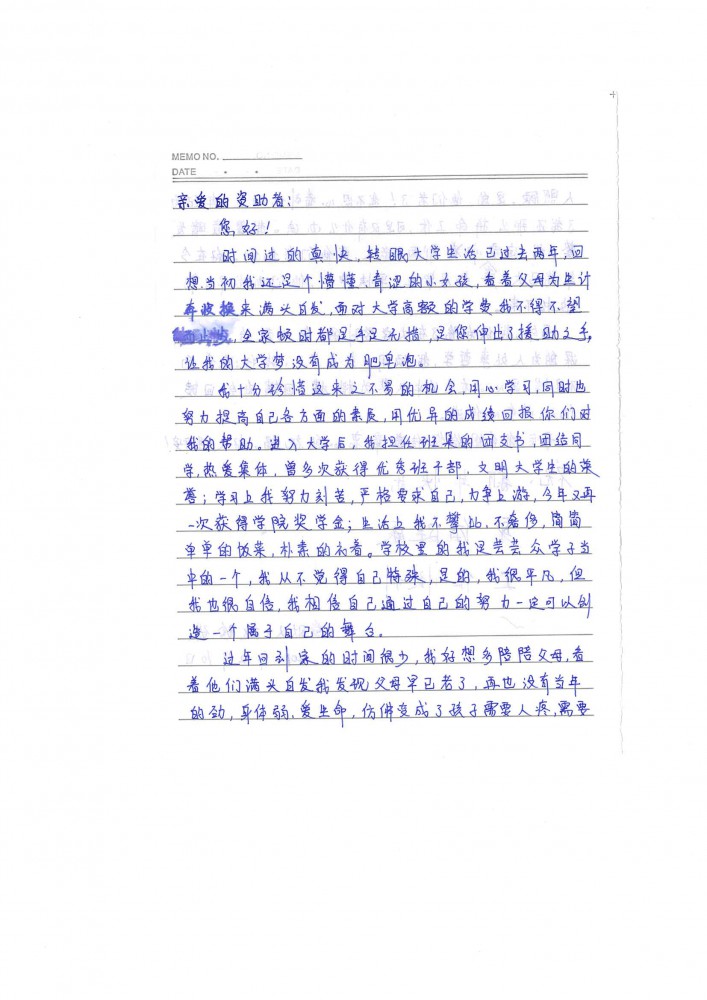 MEMO NO.
DATE
亲爱的资助者:
您好!
时间过的真快,转眼大学生活已过去两年,回
想当初我还是个懵懂、青涩的小女孩,看着父母为生计
来满头白发,面对大学高额的学费我不得不望
,全家顿时都是手足无措,是您伸出了援助之手,
让我的大学梦没有成为肥皂泡。
我十分珍惜这来之不易的机会,用心学习,同时也
努力提高自己各方面的素质,用优异的成绩回报你们对
我的帮助。进入大学后,我担任班集的团支书,团结同
学,热爱集体,曾多次获得优秀班干部、文明大学生的荣
誉;学习上我努力刻苦,严格要求自己,力争上游,今年又再
一次获得学院奖学金;生活上我不攀比,不奢侈,简简
单单的饭菜,朴素的衣着。学校里的我是芸芸众学子当
中的一个,我从不觉得自己特殊,是的,我很平凡,但
我也很自信,我相信自己通过自己的努力一定可以创
造一个属于自己的舞台。
过年回到家的时间很少,我好想多陪陪父母,看
着他们满头白发我发现父母早已老了,再也没有当年
的劲,身体弱,爱生命,仿佛变成了孩子需要人疼,需要